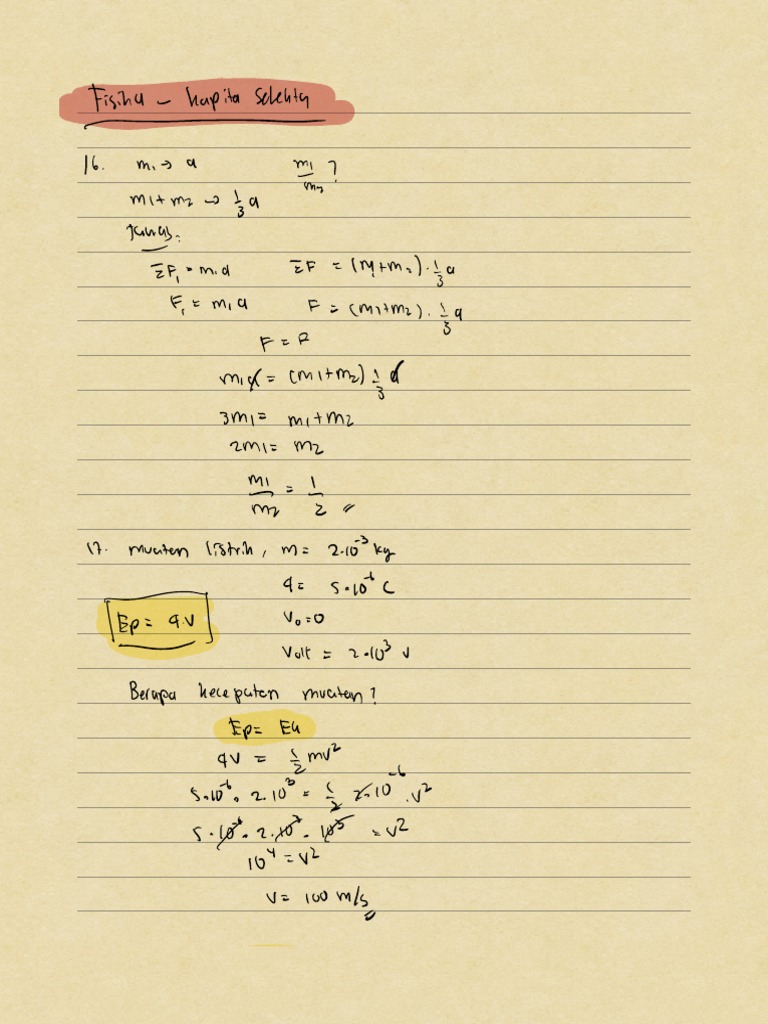 Fisika - kapita selekta
16. m1 → a   m1/m2 ?
m1 + m2 → 1/3 a
Jawab:
ΣF1 = m1a   ΣF = (m1+m2) . 1/3 a
F1 = m1a   F = (m1+m2) . 1/3 a
F = F
m1a = (m1+m2) 1/3 a
3m1 = m1+m2
2m1 = m2
m1/m2 = 1/2 //
17. muatan listrik, m = 2.10⁻³ kg
q = 5.10⁻⁶ C
Ep = q.V   Vo = 0
Volt = 2.10³ V
Berapa kecepatan muatan?
Ep = Ek
qV = 1/2 mv²
5.10⁻⁶ . 2.10³ = 1/2 2.10⁻⁶ . v²
= v²
10⁴ = v²
v = 100 m/s